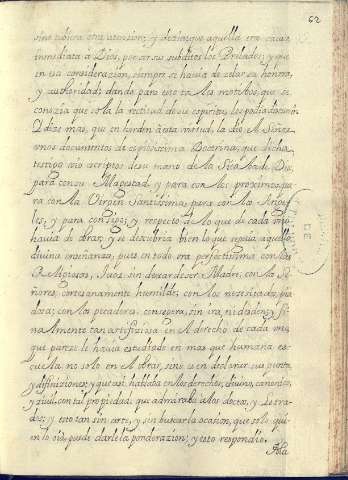 62
sino tubiera otra atencion; y dezia que aquella era causa
inmediata a Dios, por ser sus subditos los Prelados; y que
en esta consideracion, siempre se havia de zelar su honrra,
y authoridad; dando para esto tales motibos, que se
conozia que sola la rectitud de su espiritu los podia
Y dize mas, que en orden a esta virtud, la dio el Señor
unos documentos de copiosissima Doctrina; que dicha
testigo vio escriptos de su mano de la Sierba de Dios,
para con su Magestad, y para con los proximos, pa
ra con la Virgen Santissima, para con los Ange
les, y para consigo; y respecto de lo que de cada uno
havia de obrar; y se descubria bien lo que seguia aquella
divina enseñanza; pues en todo era perfectissima con las
Religiosas, Juez, sin dexar de ser Madre, con los Se
ñores, cortesanamente humilde; con los necesitados, pia
dosa; con los pecadores, conserera, sin ira, ni desden; y fi
nalmente tan artifiziosa en el derecho de cada uno
que pareze le havia estudiado en mas que humana es
cuela no solo en el obrar, sino es en disolver sus puntos
y difiniziones; y que asi hablaba en los derechos, divino, canonico,
y zivil, con tal propiedad, que admiraba a los doctos, y Letra
dos; y esto tan sin arte, y sin buscar la ocasion, que solo qui
en lo oio, puede darle la ponderazion; y esto respondio.
A la